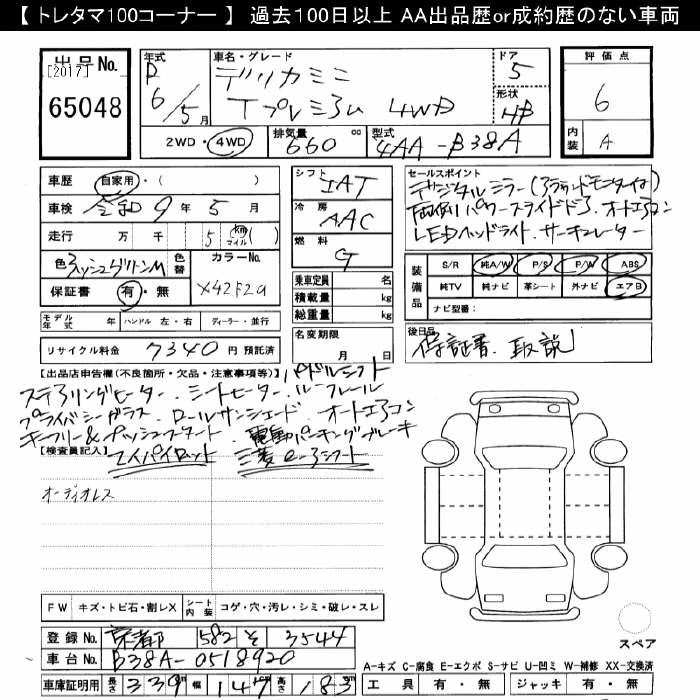 【トレタマ100コーナー】 過去100日以上 AA出品歴or成約歴のない車両
出品No. [2017] 65048
年式 R 6/5月
車名・グレード デリカミニ Tプレミアム 4WD
ドア 5 形状 HB
評価点 6
内装 A
2WD・4WD 排気量 660 cc 型式 4AA-B38A
車歴 自家用・( )
車検 令和 9年 5月
走行 万 千 5 km マイル ( )
色 アッシュグリーンM 色替 カラーNo. X42F29
保証書 有・無
モデル年式 年 ハンドル 左・右 ディーラー・並行
リサイクル料金 7340 円 預託済
シフト IAT
冷房 AAC
燃料 G
乗車定員 名
積載量 kg
総重量 kg
名変期限 月 日
セールスポイント
デジタルミラー(アラウンドモニター付)
両側パワースライドドア. オートエアコン
LEDヘッドライト. サーキュレーター
装備品 S/R 純A/W P/S P/W ABS
純TV 純ナビ 革シート 外ナビ エアB
ナビ型番:
後日品 保証書. 取説
【出品店申告欄(不良箇所・欠品・注意事項等)】 パドルシフト
ステアリングヒーター. シートヒーター. ルーフレール
プライバシーガラス. ロールサンシェード. オートエアコン
キーフリー&プッシュスタート. 電動パーキングブレーキ
【検査員記入】 マイパイロット 三菱e-アシスト
オーディオレス
FW キズ・トビ石・割レX シート内装 コゲ・穴・汚レ・シミ・破レ・スレ
登録No. 京都 582 そ 3544
車台No. B38A-0518920
車庫証明用 長さ 339 幅 147 高さ 183
スペア
A-キズ C-腐食 E-エクボ S-サビ U-凹ミ W-補修 XX-交換済
工具 有・無 ジャッキ 有・無